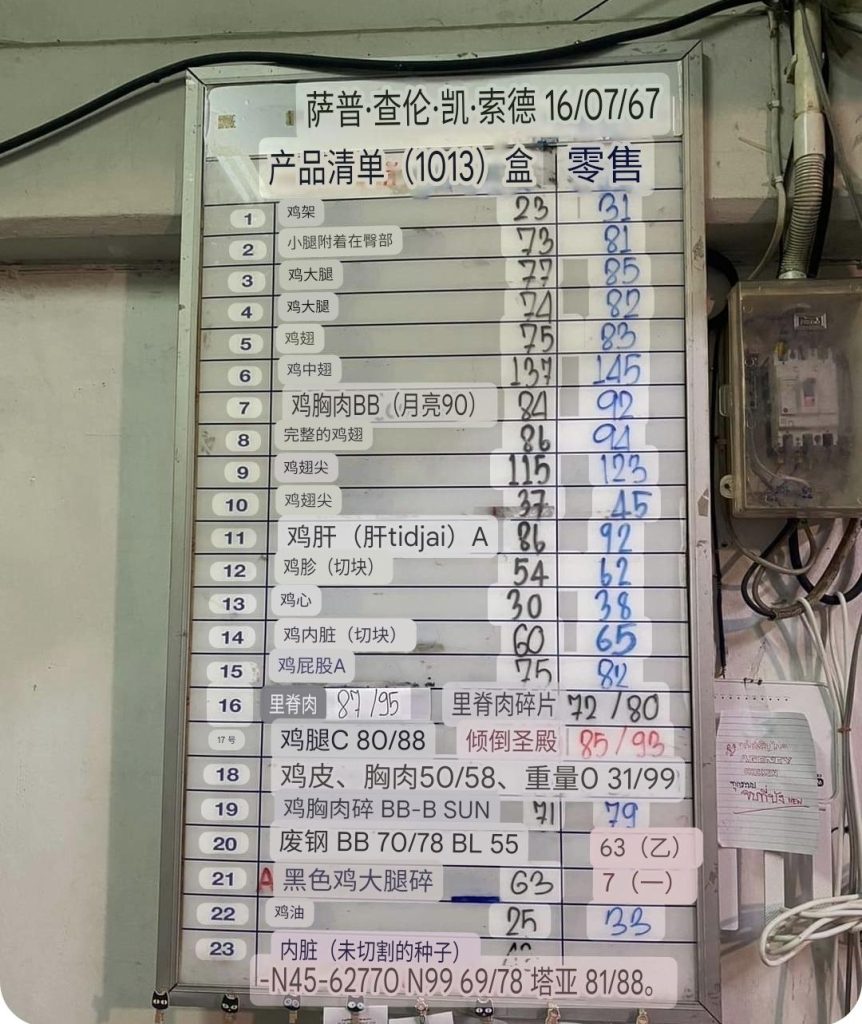 萨普·查伦·凯·索德 16/07/67
产品清单（1013）盒 零售
1 鸡架 23 31
2 小腿附着在臀部 73 81
3 鸡大腿 77 85
4 鸡大腿 74 82
5 鸡翅 75 83
6 鸡中翅 137 145
7 鸡胸肉BB（月亮90） 84 92
8 完整的鸡翅 86 94
9 鸡翅尖 115 123
10 鸡翅尖 37 45
11 鸡肝（肝tidjai）A 86 92
12 鸡胗（切块） 54 62
13 鸡心 30 38
14 鸡内脏（切块） 60 65
15 鸡屁股A 75 82
16 里脊肉 87/95 里脊肉碎片 72/80
17号 鸡腿C 80/88 倾倒圣殿 85/93
18 鸡皮、胸肉50/58、重量0 31/99
19 鸡胸肉碎 BB-B SUN 71 79
20 废钢 BB 70/78 BL 55 63（乙）
21 A 黑色鸡大腿碎 63 7（一）
22 鸡油 25 33
23 内脏（未切割的种子）
-N45-62770 N99 69/78 塔亚 81/88。
AGENTY
NEW